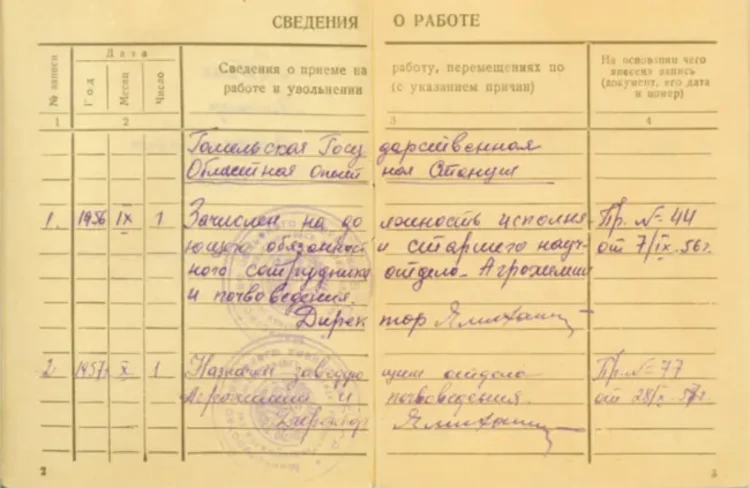 СВЕДЕНИЯ О РАБОТЕ
№ записи
Дата
Год
Месяц
Число
Сведения о приеме на работу, перемещениях по
работе и увольнении (с указанием причин)
На основании чего
внесена запись
(документ, его дата
и номер)
1 2 3 4
Гомельская Государственная
Областная опытная Станция
1. 1956 IX 1 Зачислен на должность исполня- Пр. № 44
ющего обязанности старшего науч- от 7/IX. 56 г.
ного сотрудника отдела Агрохимии
и почвоведения.
Директор
2 1957 X 1 Назначен заведующим отдела Пр. № 77
Агрохимии и почвоведения. от 28/IX. 57г.
Директор
2 3